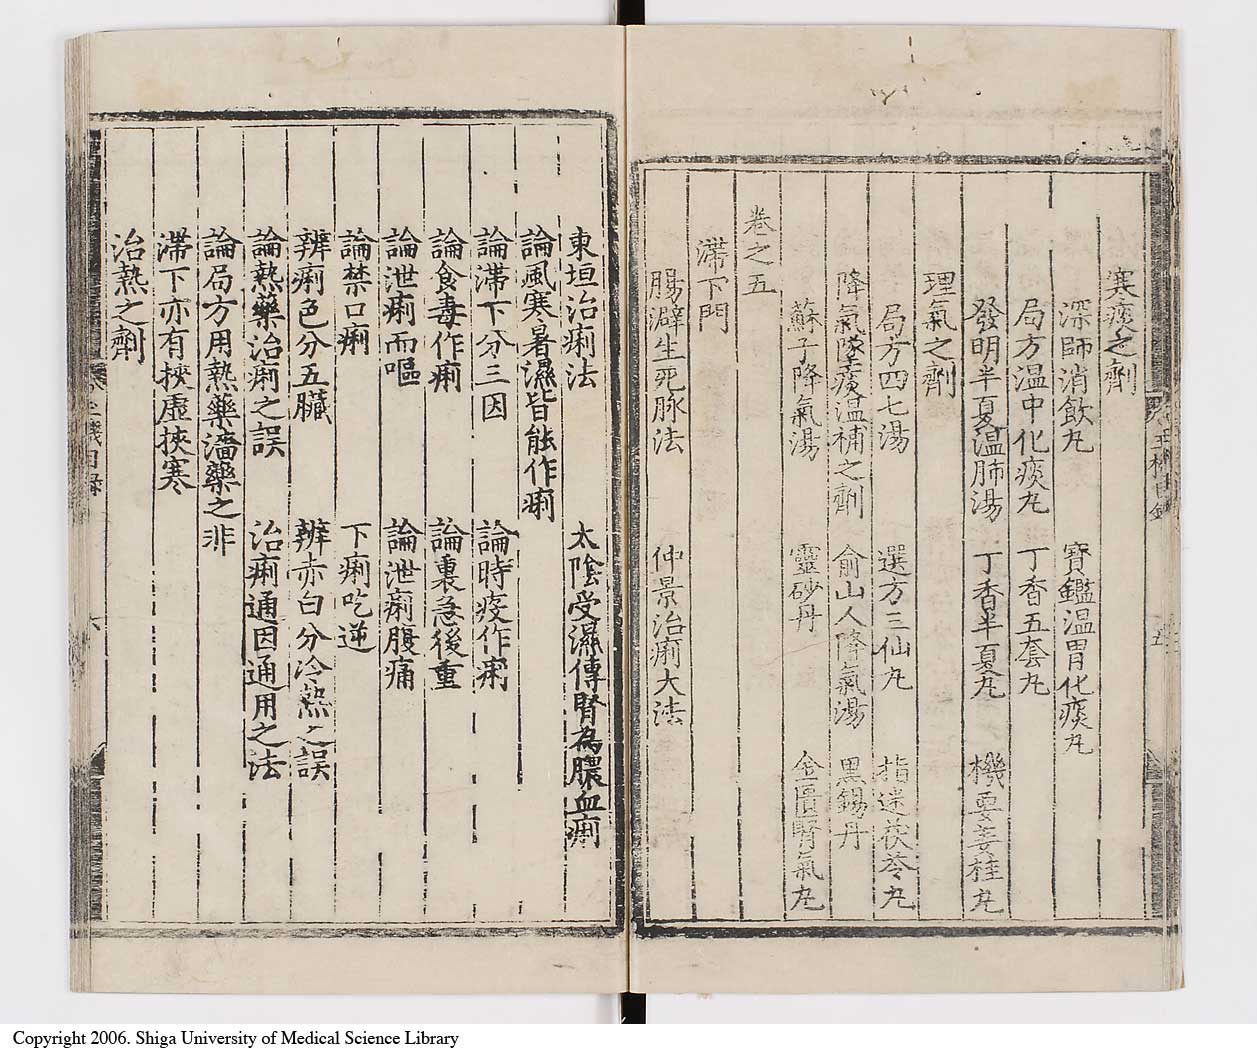 寒痰之劑
深師消飲丸　寶鑑温胃化痰丸
局方温中化痰丸　丁香五套丸
發明半夏温肺湯　丁香半夏丸　機要姜桂丸
理氣之劑
局方四七湯　選方三仙丸　指迷茯苓丸
降氣墜痰温補之劑　俞山人降氣湯　黑錫丹
蘇子降氣湯　靈砂丹　金匱腎氣丸
卷之五
滯下門
腸澼生死脉法　仲景治痢大法
東垣治痢法　太陰受濕傳腎為膿血痢
論風寒暑濕皆能作痢
論滯下分三因　論時疫作痢
論食毒作痢　論裏急後重
論泄痢而嘔　論泄痢腹痛
論禁口痢　下痢吃逆
辨痢色分五臟　辨赤白分冷熱之誤
論熱藥治痢之誤　治痢通因通用之法
論局方用熱藥濇藥之非
滯下亦有挾虛挾寒
治熱之劑
六
五
Copyright 2006. Shiga University of Medical Science Library